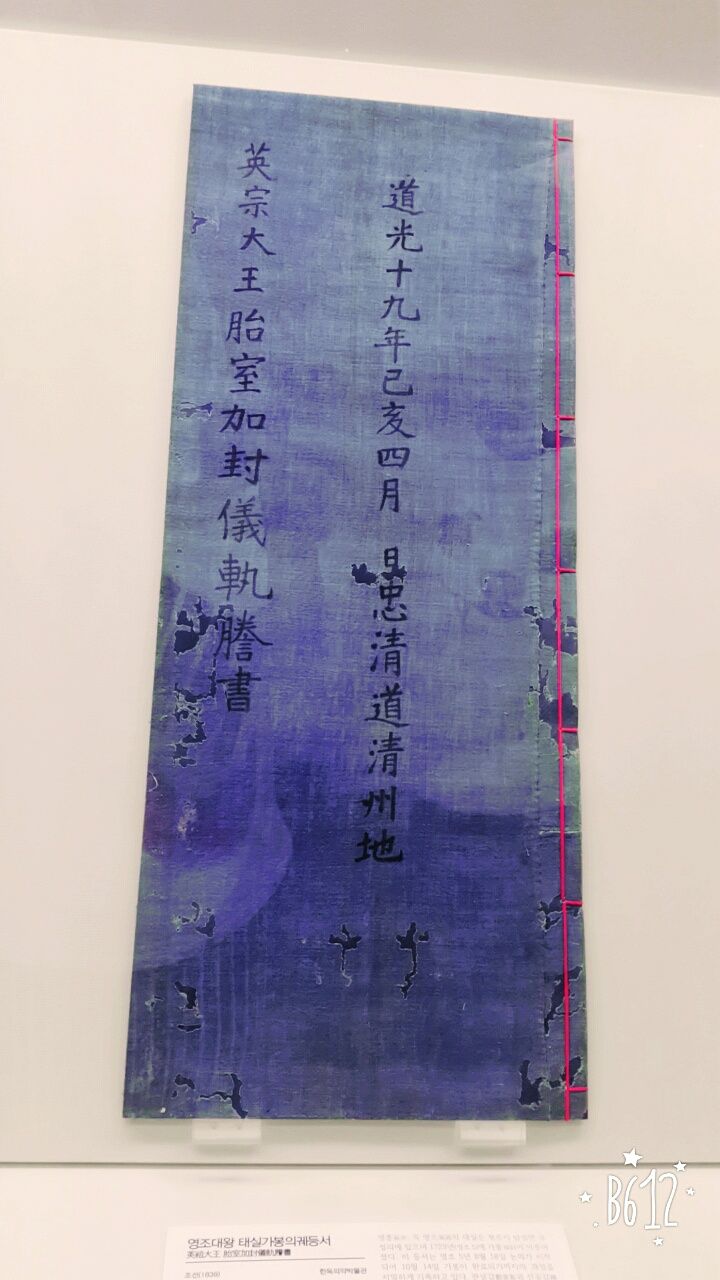 道光十九年己亥四月 日忠清道清州地
英宗大王胎室加封儀軌謄書
영조대왕 태실가봉의궤등서
英祖大王 胎室加封儀軌謄書
조선(1839)
한독의약박물관
B612